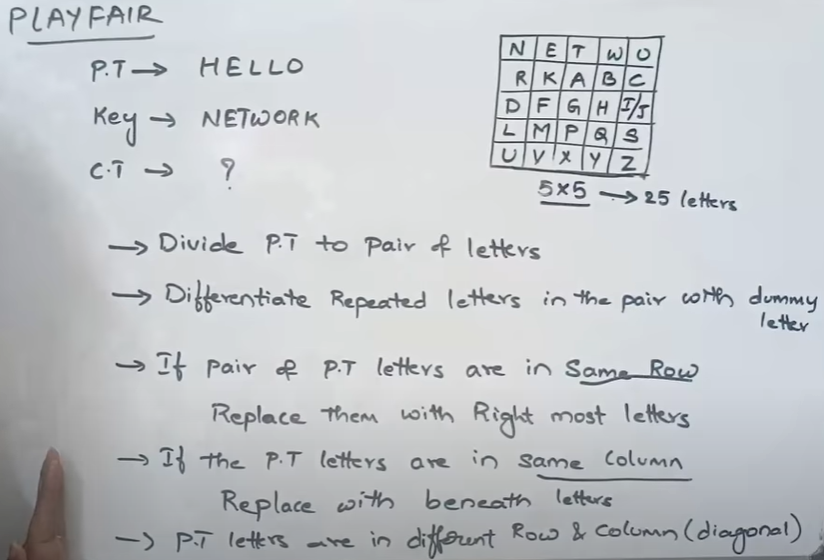 PLAYFAIR
P.T → HELLO
Key → NETWORK
C.T → ?
N E T W O
R K A B C
D F G H I/J
L M P Q S
U V X Y Z
5×5 → 25 letters
→ Divide P.T to Pair of letters
→ Differentiate Repeated letters in the pair with dummy
letter
→ If pair of P.T letters are in Same Row
Replace them with Right most letters
→ If the P.T letters are in same Column
Replace with beneath letters
→ P.T letters are in different Row & Column (diagonal)